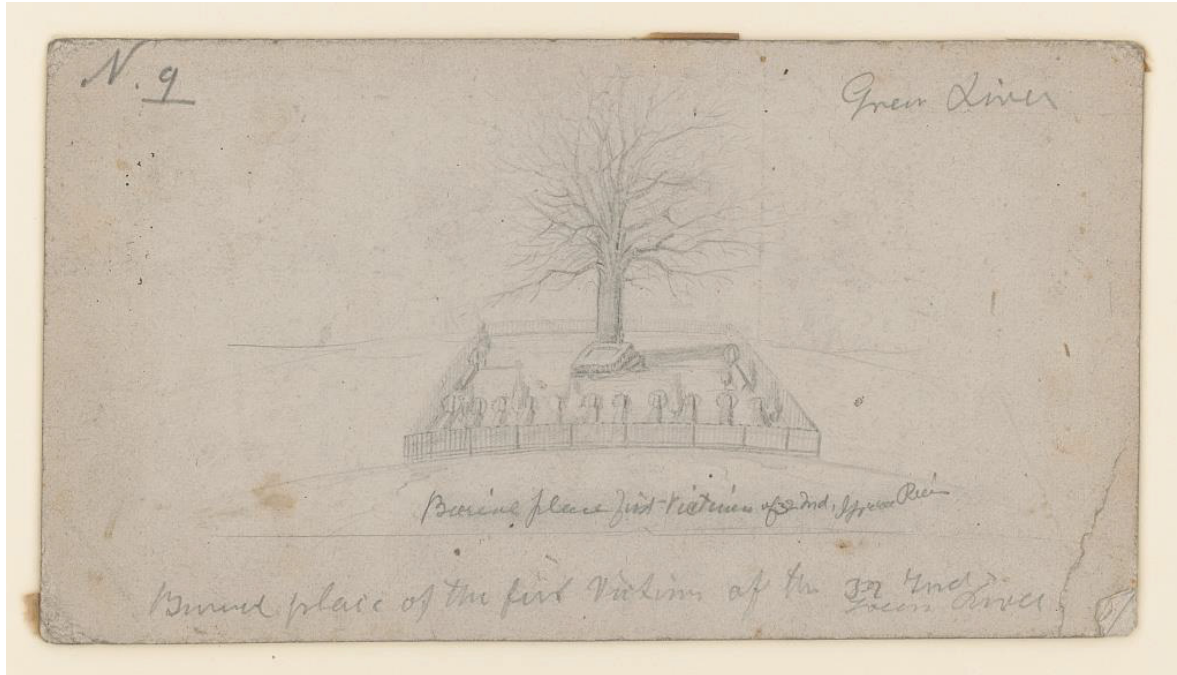 N. 9
Green River
Burial place first Victims of 32 Ind. Green River
Burial place of the first Victims of the 32 Ind
Green River